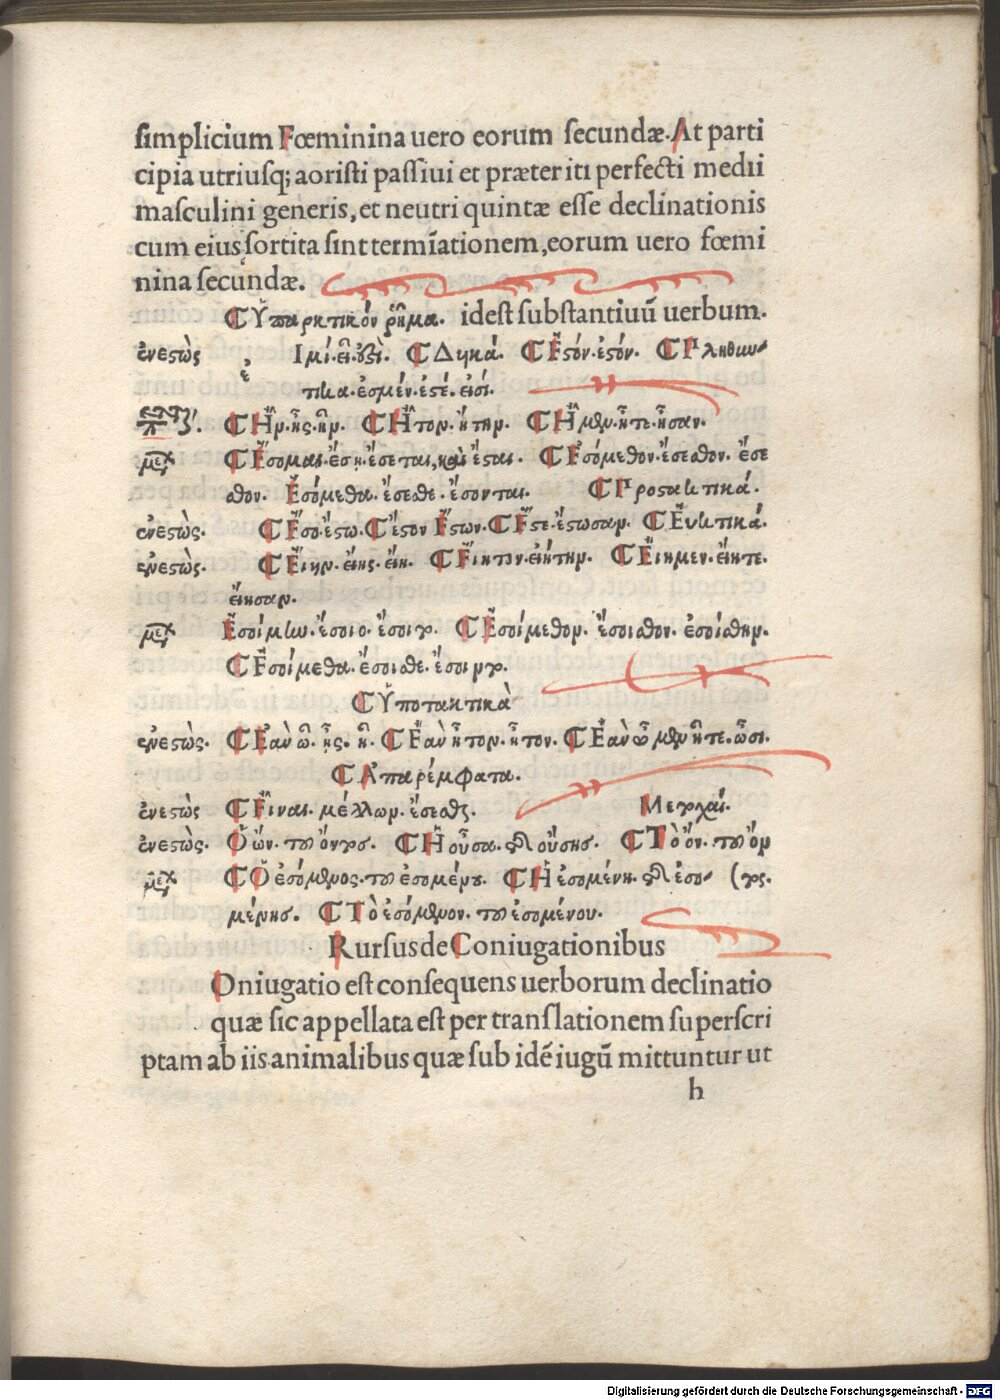 simplicium Fœminina uero eorum secundæ. At parti
cipia utriusq; aoristi passiui et præteriti perfecti medii
masculini generis, et neutri quintæ esse declinationis
cum eius sortita sint termīationem, eorum uero fœmi
nina secundæ.
Ὕπαρκτικόν ῥῆμα. idest substantiuū uerbum.
ἐνεστὼς Ιμί. εἶ. ἐστὶ. Δυικά. Ἐστόν. ἐστόν. Πληθυν
ἐ τικα. ἐσμέν. ἐστέ. εἰσί.
Ἦν. ἦς. ἦν. Ἦτον. ἤτην. Ἦμεν. ἦτε. ἦσαν.
Ἔσομαι. ἔσῃ. ἔσεται, καὶ ἔσται. Ἐσόμεθον. ἔσεσθον. ἔσε
σθον. Ἐσόμεθα. ἔσεσθε. ἔσονται. Προστακτικά.
ἐνεστὼς. Ἔσο. ἔστω. ἔστον ἔστων. Ἔστε. ἔστωσαν. Ἐυκτικά.
ἐνεστὼς. Εἴην. εἴης. εἴη. Εἴητον. εἰήτην. Εἴημεν. εἴητε.
εἴησαν.
Ἐσοίμην. ἔσοιο. ἔσοιτο. Ἐσοίμεθον. ἔσοισθον. ἐσοίσθην.
Ἐσοίμεθα. ἔσοισθε. ἔσοιντο.
Ὑποτακτικὰ
ἐνεστὼς. Ἐαν ὦ. ᾖς. ᾖ. Ἐὰν ἦτον. ἦτον. Ἐὰν ὦμεν ἦτε. ὦσι.
Ἀπαρέμφατα.
ἐνεστὼς Εἶναι. μέλλων. ἔσεσθαι. Μετοχαί.
ἐνεστὼς. Ὁ ὤν. τοῦ ὄντος. Ἡ οὖσα. τῆς οὔσης. Τὸ ὄν. τοῦ ὄν
Ὁ ἐσόμενος. τοῦ ἐσομένου. Ἡ ἐσομένη. τῆς ἐσο (τος.
μένης. Τὸ ἐσόμενον. τοῦ ἐσομένου.
Rursus de Coniugationibus
Oniugatio est consequens uerborum declinatio
quæ sic appellata est per translationem superscri
ptam ab iis animalibus quæ sub idē iugū mittuntur ut
h
Digitalisierung gefördert durch die Deutsche Forschungsgemeinschaft - DFG